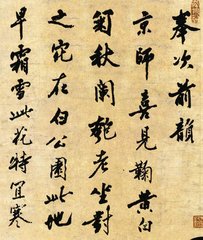 奉次前韻
京師喜見鞠黃白
菊秋闌匏老坐對
之宛在白公園此地
早霜雪此花特宜寒